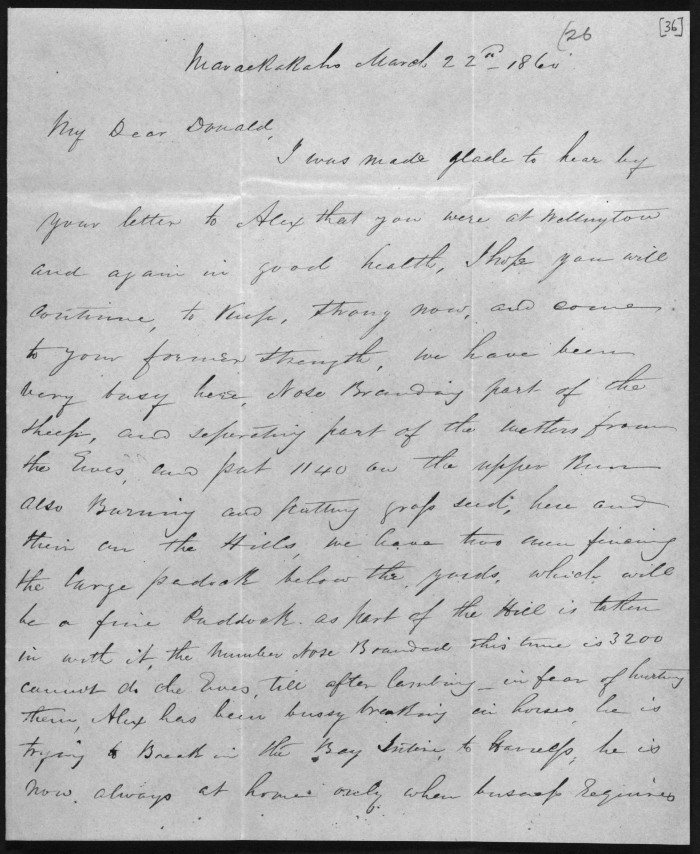 (26
[36]
Maraekakaho March 22nd 1860
My Dear Donald,
I was made glade to hear by
your letter to Alex that you were at Wellington
and again in good health, I hope you will
continue, to Keep, strong now, and come
to your former strength, we have been
very busy here, Nose Branding part of the
sheep, and seperating part of the wethers from
the Ewes, and put 1140 on the upper Run
also Burning and putting grass seed, here and
their on the Hills, we have two men fincing
the large padock below the yards, which will
be a fine Paddock. as part of the Hill is taken
in with it, the Number Nose Branded this time is 3200
cannot do the Ewes, till after lambing - in fear of hurting
them, Alex has been bussy breaking in horses he is
trying to Break in the Bay Intire, to Harness, he is
now always at home only when busness Requires